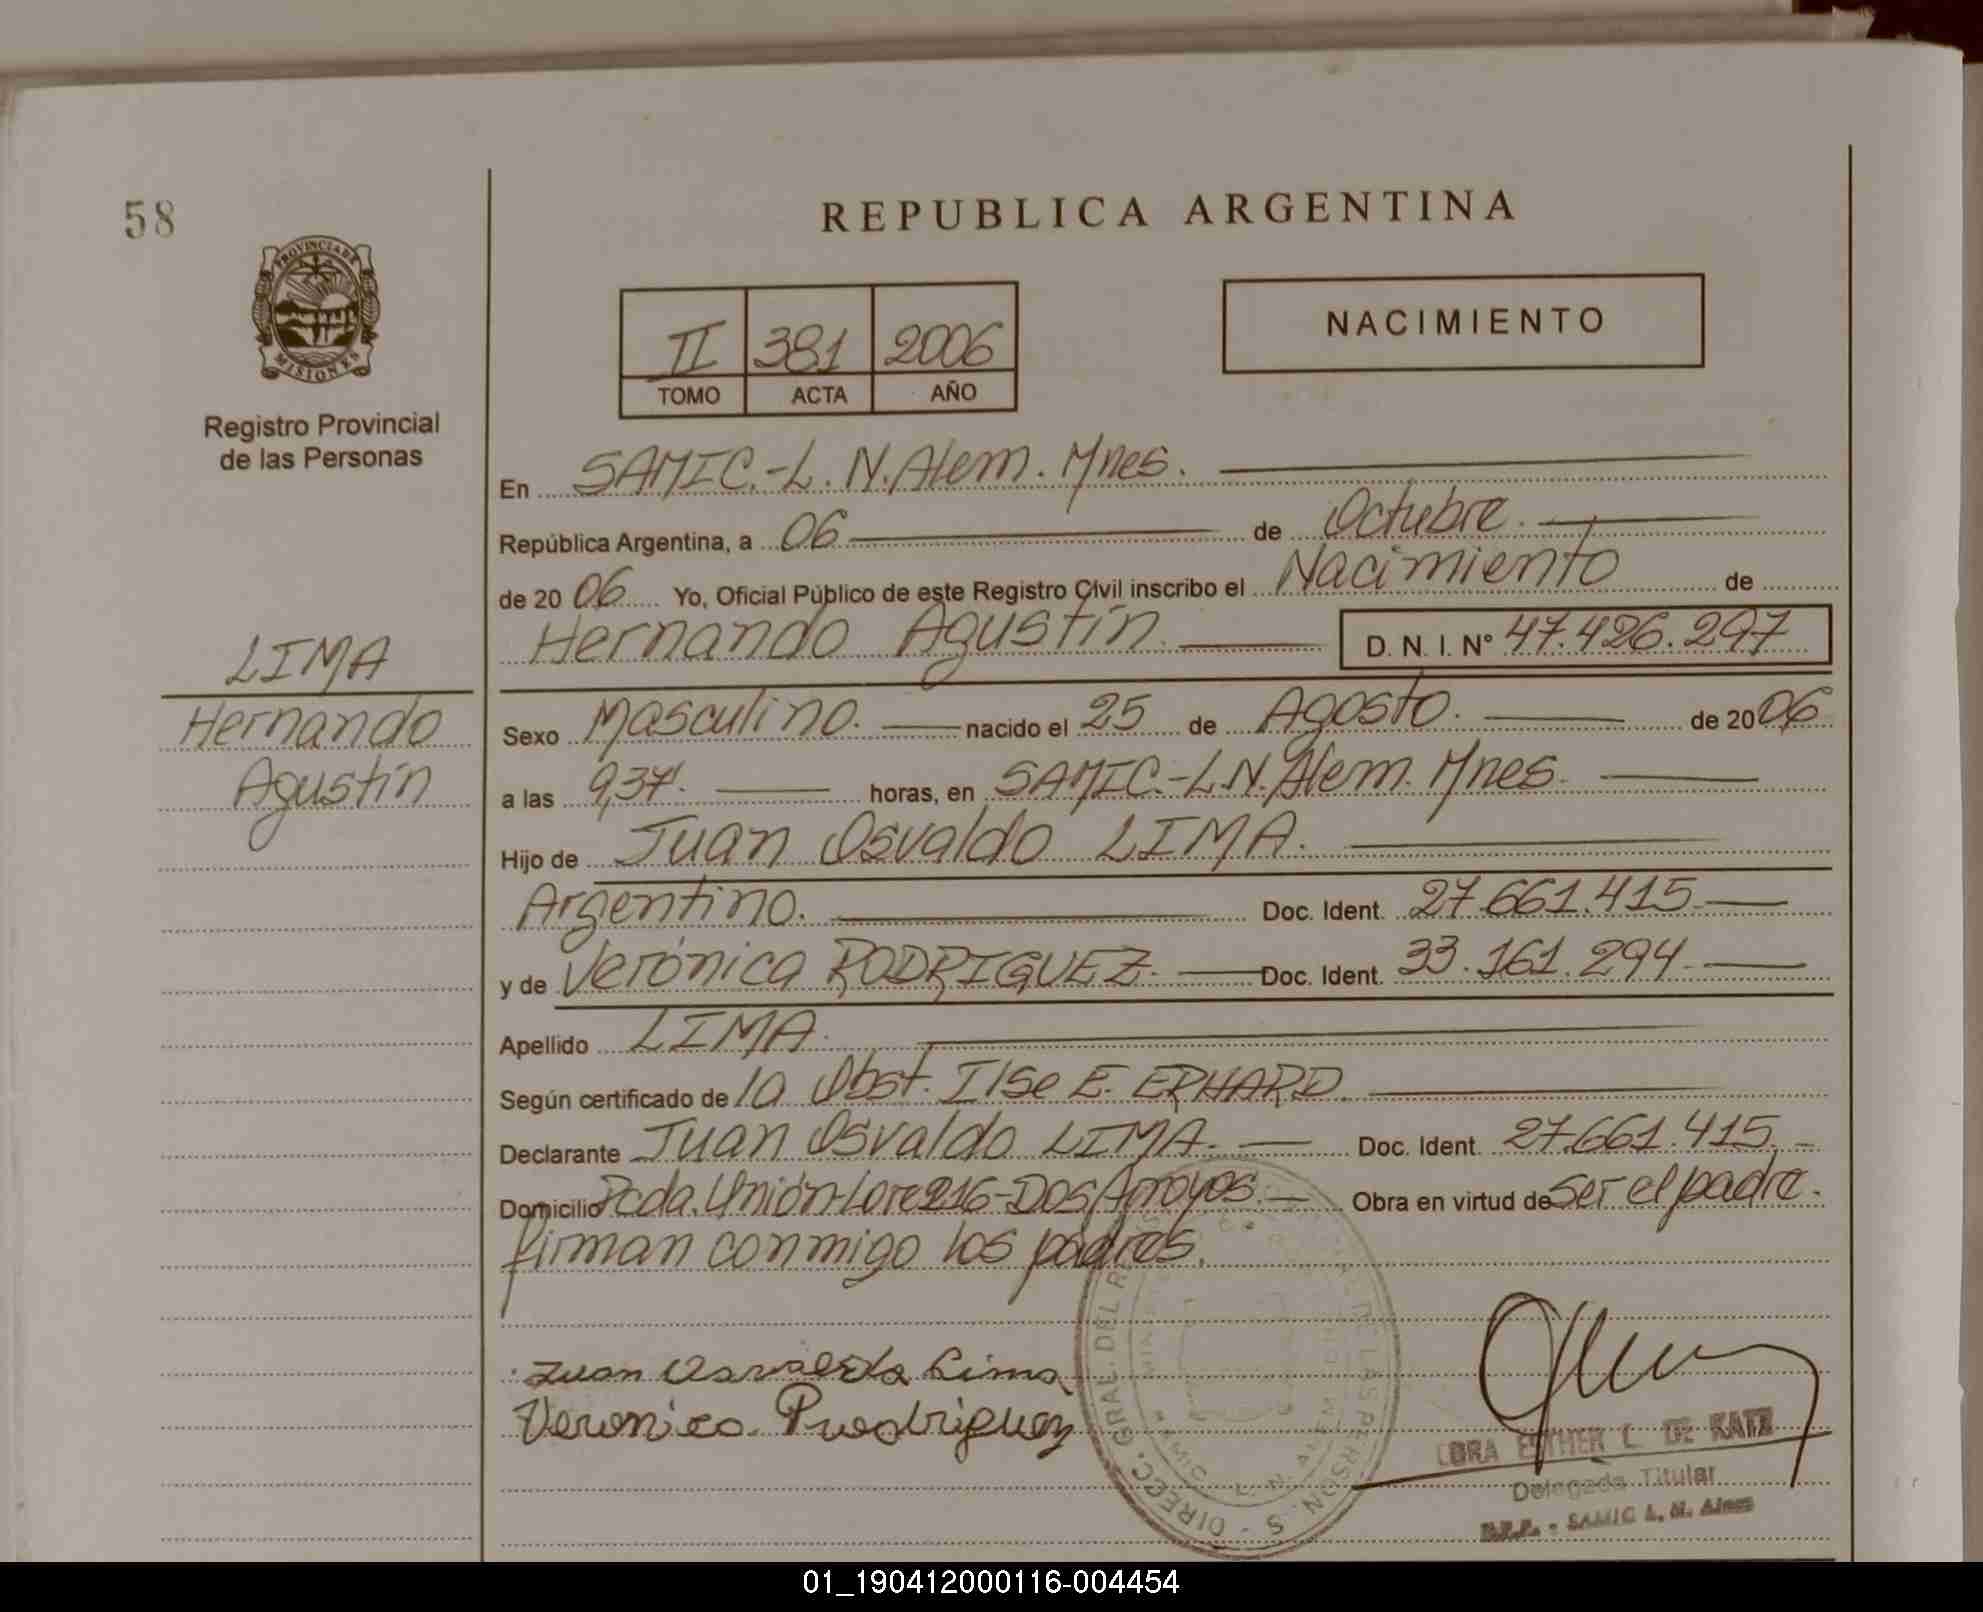 58
REPUBLICA ARGENTINA
PROVINCIA DE
MISIONES
Registro Provincial
de las Personas
II 381 2006
TOMO ACTA AÑO
NACIMIENTO
En SAMIC.-L.N.Alem. Mnes.
República Argentina, a 06 de Octubre.
de 20 06 Yo, Oficial Público de este Registro Civil inscribo el Nacimiento de
Hernando Agustín D. N. I. Nº 47.426.297
LIMA
Hernando
Agustín
Sexo Masculino. nacido el 25 de Agosto. de 20 06
a las 9,37. horas, en SAMIC.-L.N.Alem. Mnes.
Hijo de Juan Osvaldo LIMA.
Argentino. Doc. Ident. 27.661.415
y de Verónica RODRIGUEZ. Doc. Ident. 33.161.294
Apellido LIMA.
Según certificado de la Obst. Ilse E. ERHARD.
Declarante Juan Osvaldo LIMA. Doc. Ident. 27.661.415.
Domicilio Pcda. Unión-Lote 216-Dos Arroyos. Obra en virtud de ser el padre.
firman conmigo los padres.
Juan Osvaldo Lima
Veronica Rrodriguez
DIREC. GRAL. DEL
DE LAS PERSONAS
L. N. ALEM
ESTHER L. DE KATZ
Delegada Titular
SAMIC L. N. Alem
01_190412000116-004454